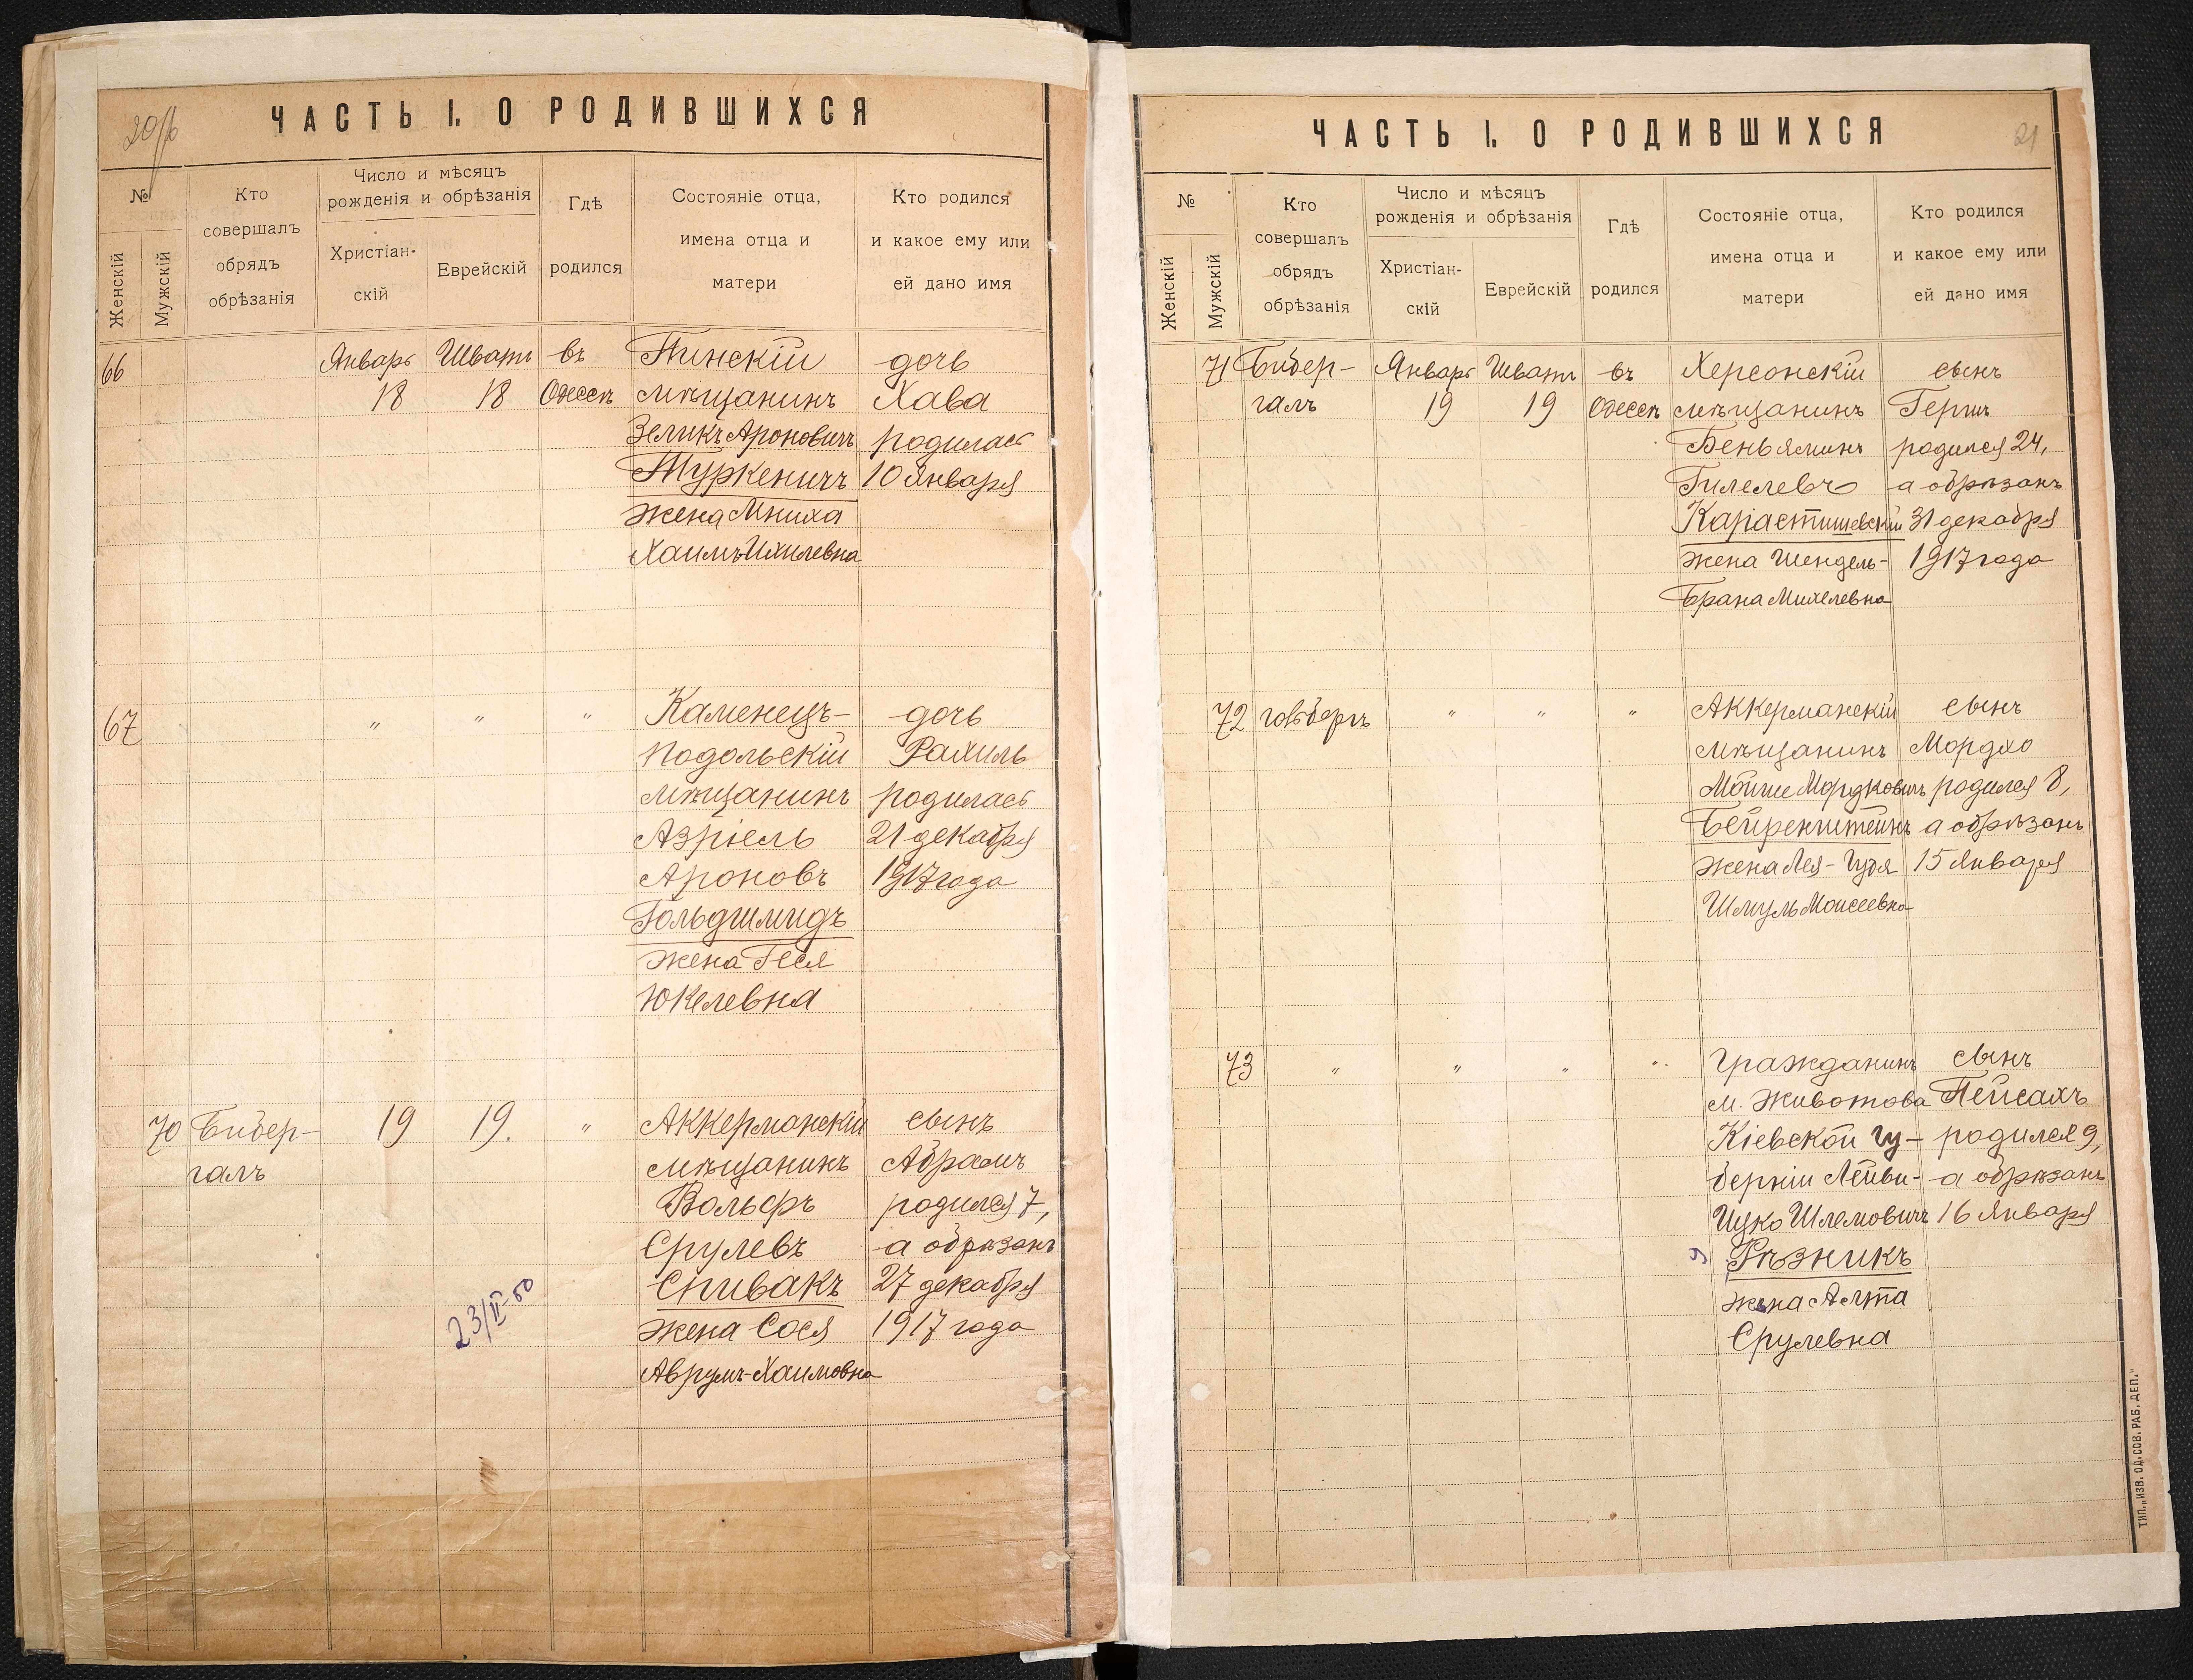 20/б
ЧАСТЬ I. О РОДИВШИХСЯ
№
Женскій
Мужскій
Кто
совершалъ
обрядъ
обрѣзанія
Число и мѣсяцъ
рожденія и обрѣзанія
Христіан-
скій
Еврейскій
Гдѣ
родился
Состояніе отца,
имена отца и
матери
Кто родился
и какое ему или
ей дано имя
66 Январь Шватъ въ Пинскій дочь
18 18 Одессѣ мѣщанинъ Хава
Зеликъ Ароновичъ родилась
Туркеничъ 10 Января
жена Мниха
Хаимъ-Ихилевна
67 " " " Каменецъ- дочь
Подольскій Рахиль
мѣщанинъ родилась
Азріель 21 декабря
Ароновъ 1917 года
Гольдшмидъ
жена Геся
Юкелевна
70 Бибер- 19 19. " Аккерманскій сынъ
галъ мѣщанинъ Абрамъ
Вольфъ родился 7,
Срулевъ а обрѣзанъ
Спивакъ 27 декабря
23/II-50
жена Сося 1917 года
Аврумъ-Хаимовна
ЧАСТЬ I. О РОДИВШИХСЯ
21
№
Женскій
Мужскій
Кто
совершалъ
обрядъ
обрѣзанія
Число и мѣсяцъ
рожденія и обрѣзанія
Христіан-
скій
Еврейскій
Гдѣ
родился
Состояніе отца,
имена отца и
матери
Кто родился
и какое ему или
ей дано имя
71 Бибер- Январь Шватъ въ Херсонскій сынъ
галъ 19 19 Одессѣ мѣщанинъ Гершъ
Беньяминъ родился 24,
Гилелевъ а обрѣзанъ
Карастишевскій 31 декабря
жена Шендель- 1917 года
Брана Михелевна
72 " " " Аккерманскій сынъ
мѣщанинъ Мордхо
Мойше Мордковичъ родился 8,
Бейренштейнъ а обрѣзанъ
жена Лея- 15 Января
Шмуль Моисеевна
73 " " " " Гражданинъ сынъ
м. Животова Пейсахъ
Кіевской гу- родился 9,
берніи Лейви- а обрѣзанъ
Ицко Шлемовичъ 16 Января
Рѣзникъ
жена
Срулевна
ТИП. „ИЗВ. ОД. СОВ. РАБ. ДЕП."